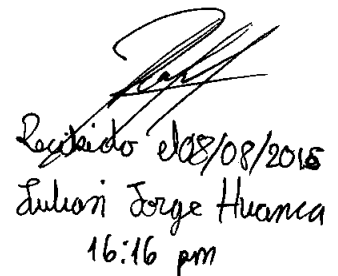 Recibido el 08/08/2015
Julian Jorge Huanca
16:16 pm